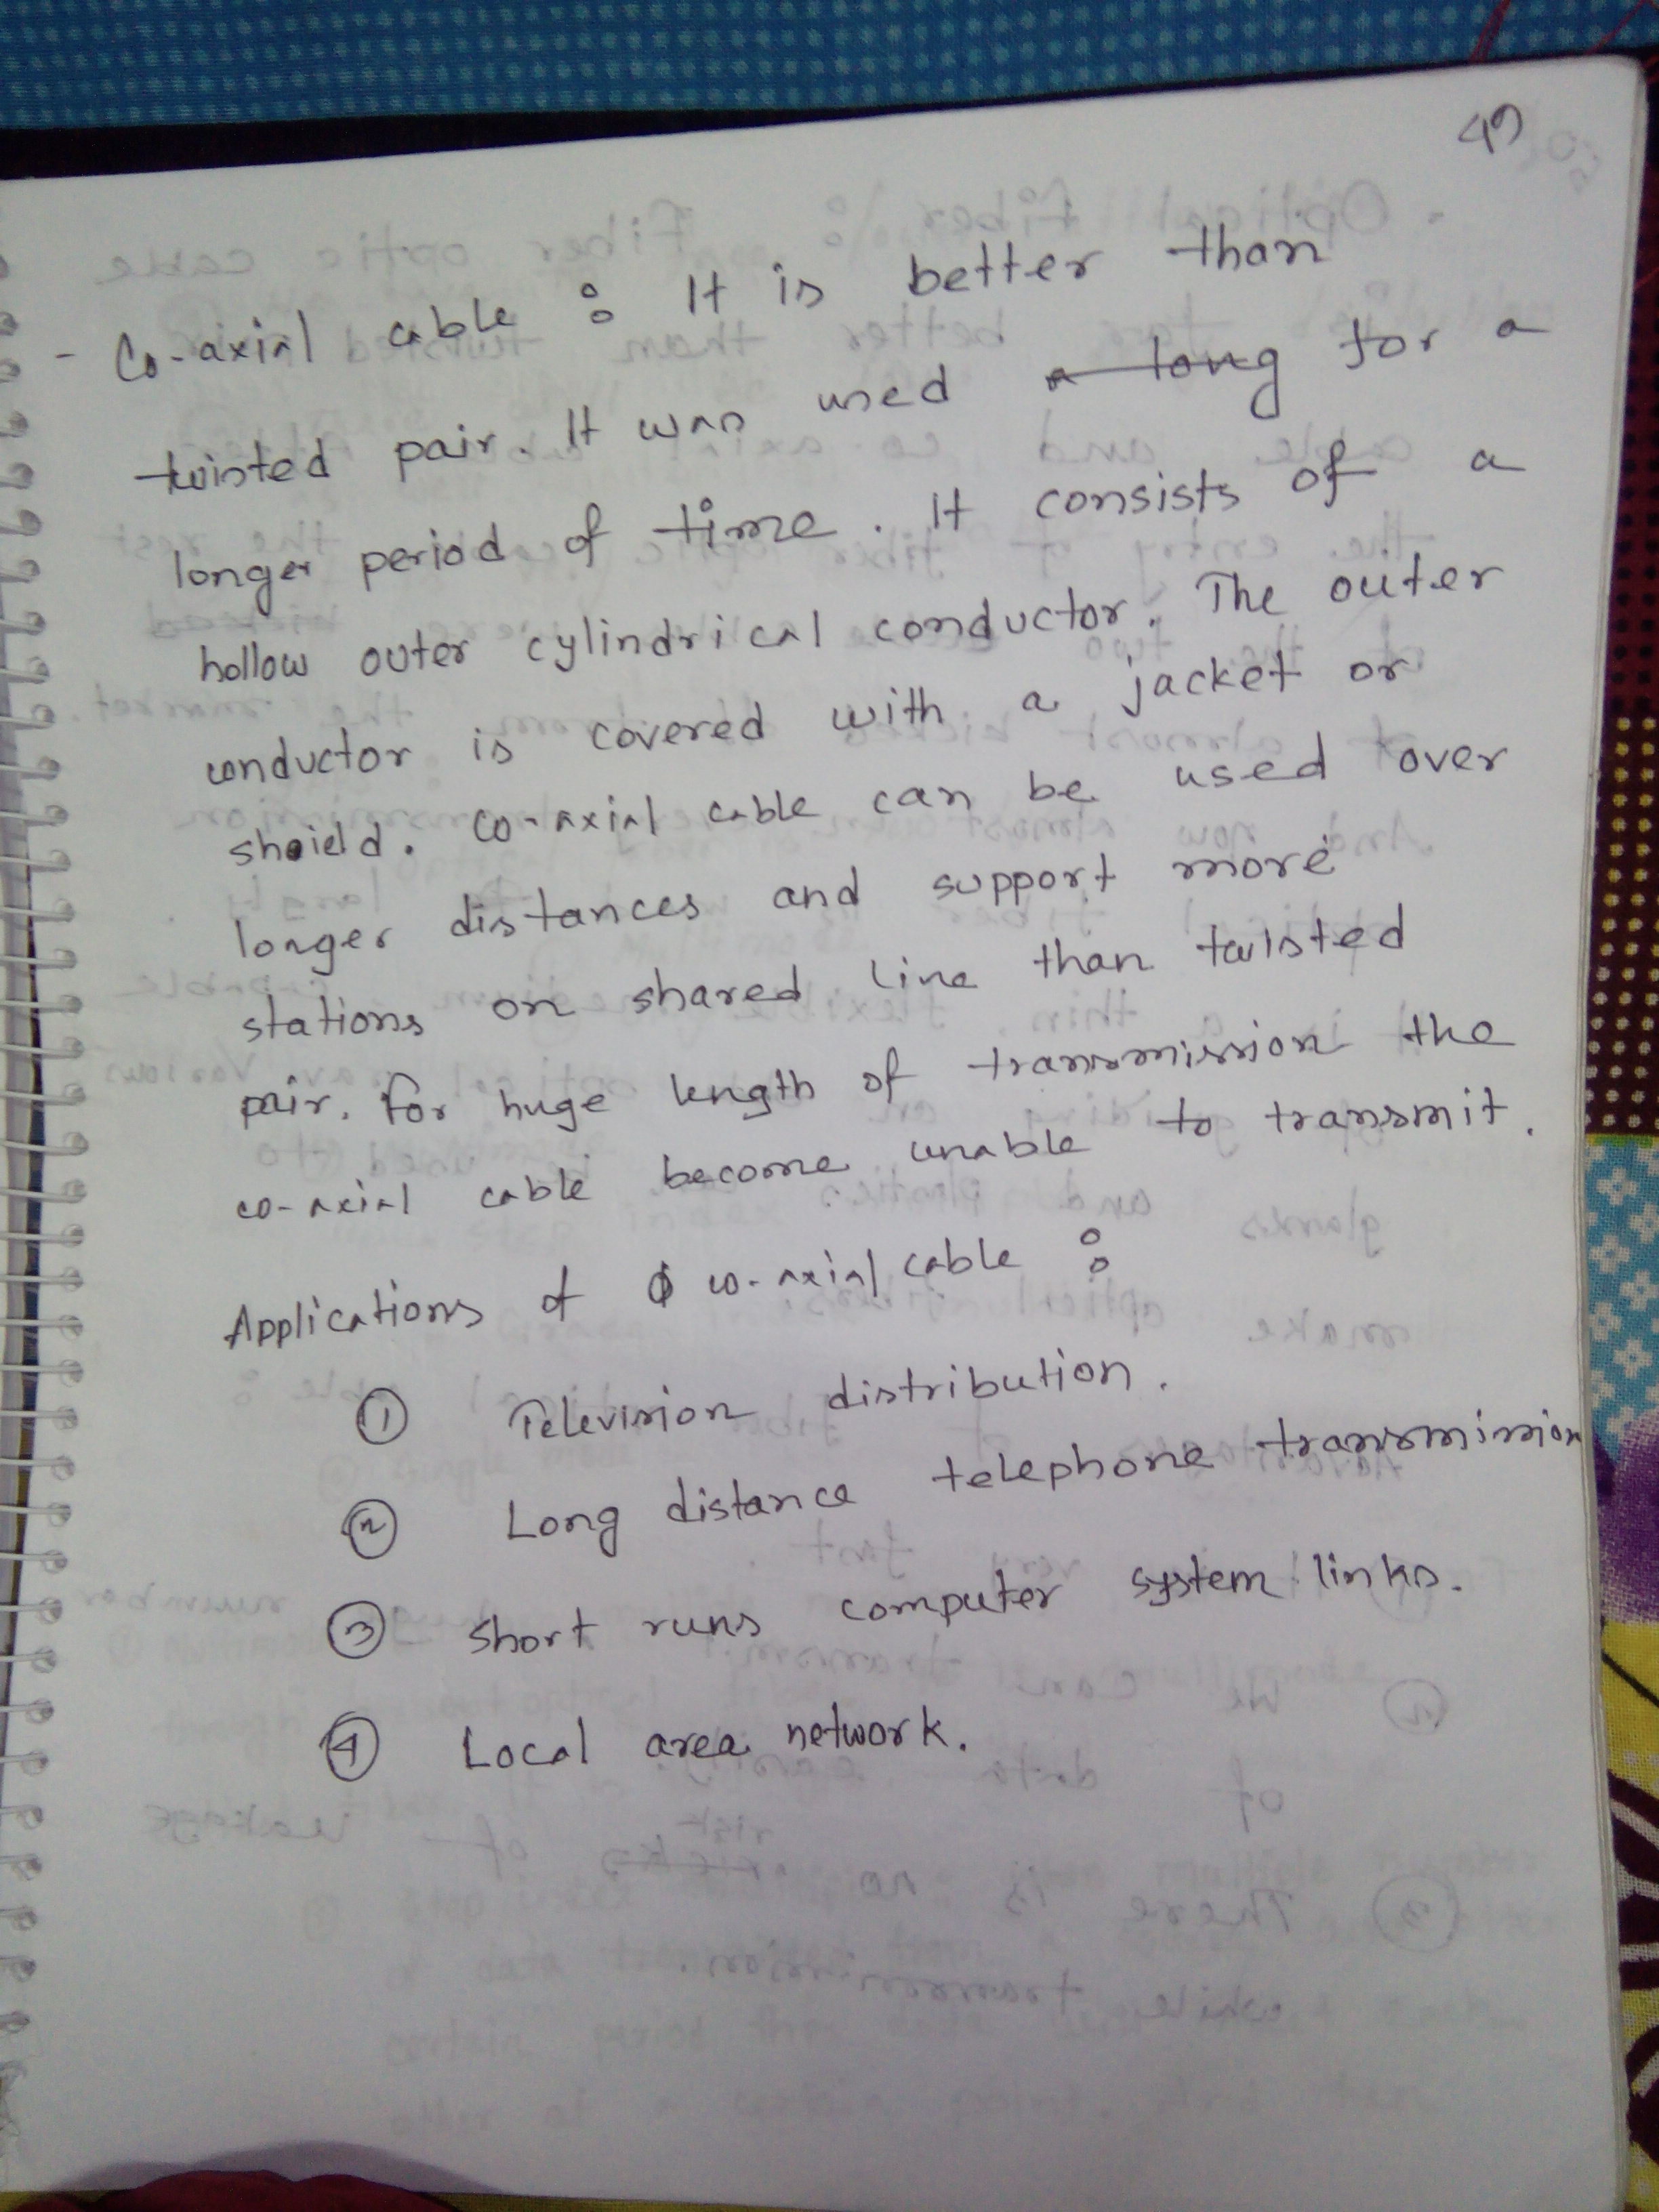 49
- Co-axial cable : It is better than
twisted pair. It was used a long for a
longer period of time. It consists of a
hollow outer cylindrical conductor. The outer
conductor is covered with a jacket or
shield. Co-axial cable can be used over
longer distances and support more
stations on shared line than twisted
pair. For huge length of transmission the
co-axial cable become unable to transmit.
Applications of co-axial cable :
① Television distribution.
② Long distance telephone transmission
③ Short runs computer system links.
④ Local area network.